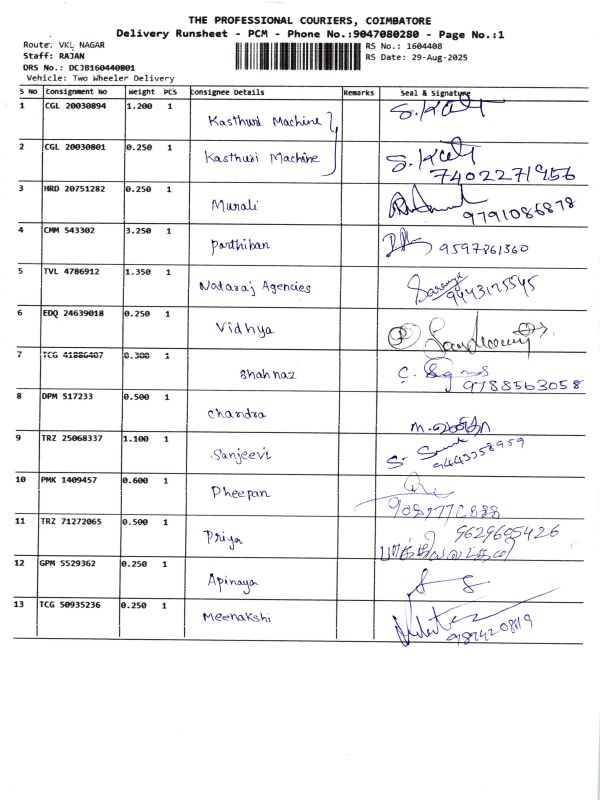 THE PROFESSIONAL COURIERS, COIMBATORE
Delivery Runsheet - PCM - Phone No.:9047080280 - Page No.:1
Route: VKL NAGAR RS No.: 1604408
Staff: RAJAN RS Date: 29-Aug-2025
DRS No.: DCJB160440801
Vehicle: Two Wheeler Delivery
S No Consignment No Weight PCS Consignee Details Remarks Seal & Signature
1 CGL 20030894 1.200 1 Kasthuri Machine
2 CGL 20030801 0.250 1 Kasthuri Machine
7402271956
3 HRD 20751282 0.250 1 Murali
9791086878
4 CMM 543302 3.250 1 Parthiban 9597861360
5 TVL 4786912 1.350 1 Nataraj Agencies Saranya
9443175545
6 EDQ 24639018 0.250 1 Vidhya
7 TCG 41886407 0.300 1 Shahnaz
9788563058
8 DPM 517233 0.500 1 Chandra
9 TRZ 25068337 1.100 1 Sanjeevi
9443358959
10 PMK 1409457 0.600 1 Dheepan
11 TRZ 71272065 0.500 1 Priya 9629605426
12 GPM 5529362 0.250 1 Apinaya
13 TCG 50935236 0.250 1 Meenakshi